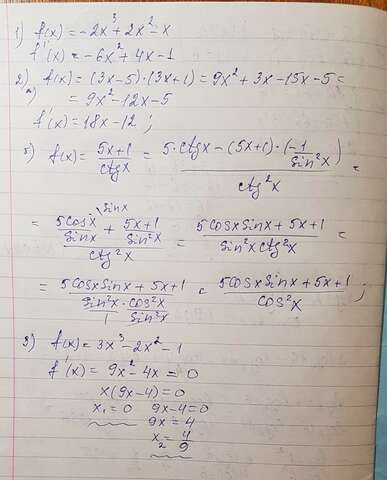 1) f(x) = -2x³ + 2x² - x
f'(x) = -6x² + 4x - 1
2) a) f(x) = (3x-5)·(3x+1) = 9x² + 3x - 15x - 5 =
= 9x² - 12x - 5
f'(x) = 18x - 12 ;
б) f(x) = (5x+1)/(ctgx) = (5·ctgx - (5x+1)·(-1/sin²x))/(ctg²x) =
= (5cosx/sinx \sinx + (5x+1)/(sin²x))/(ctg²x) = (5cosxsinx + 5x+1)/(sin²x ctg²x) =
= (5cosxsinx + 5x+1)/(sin²x/1 · cos²x/sin²x) = (5cosxsinx + 5x+1)/(cos²x) ;
3) f(x) = 3x³ - 2x² - 1
f'(x) = 9x² - 4x = 0
x(9x-4) = 0
x₁ = 0 9x-4 = 0
9x = 4
x₂ = 4/9